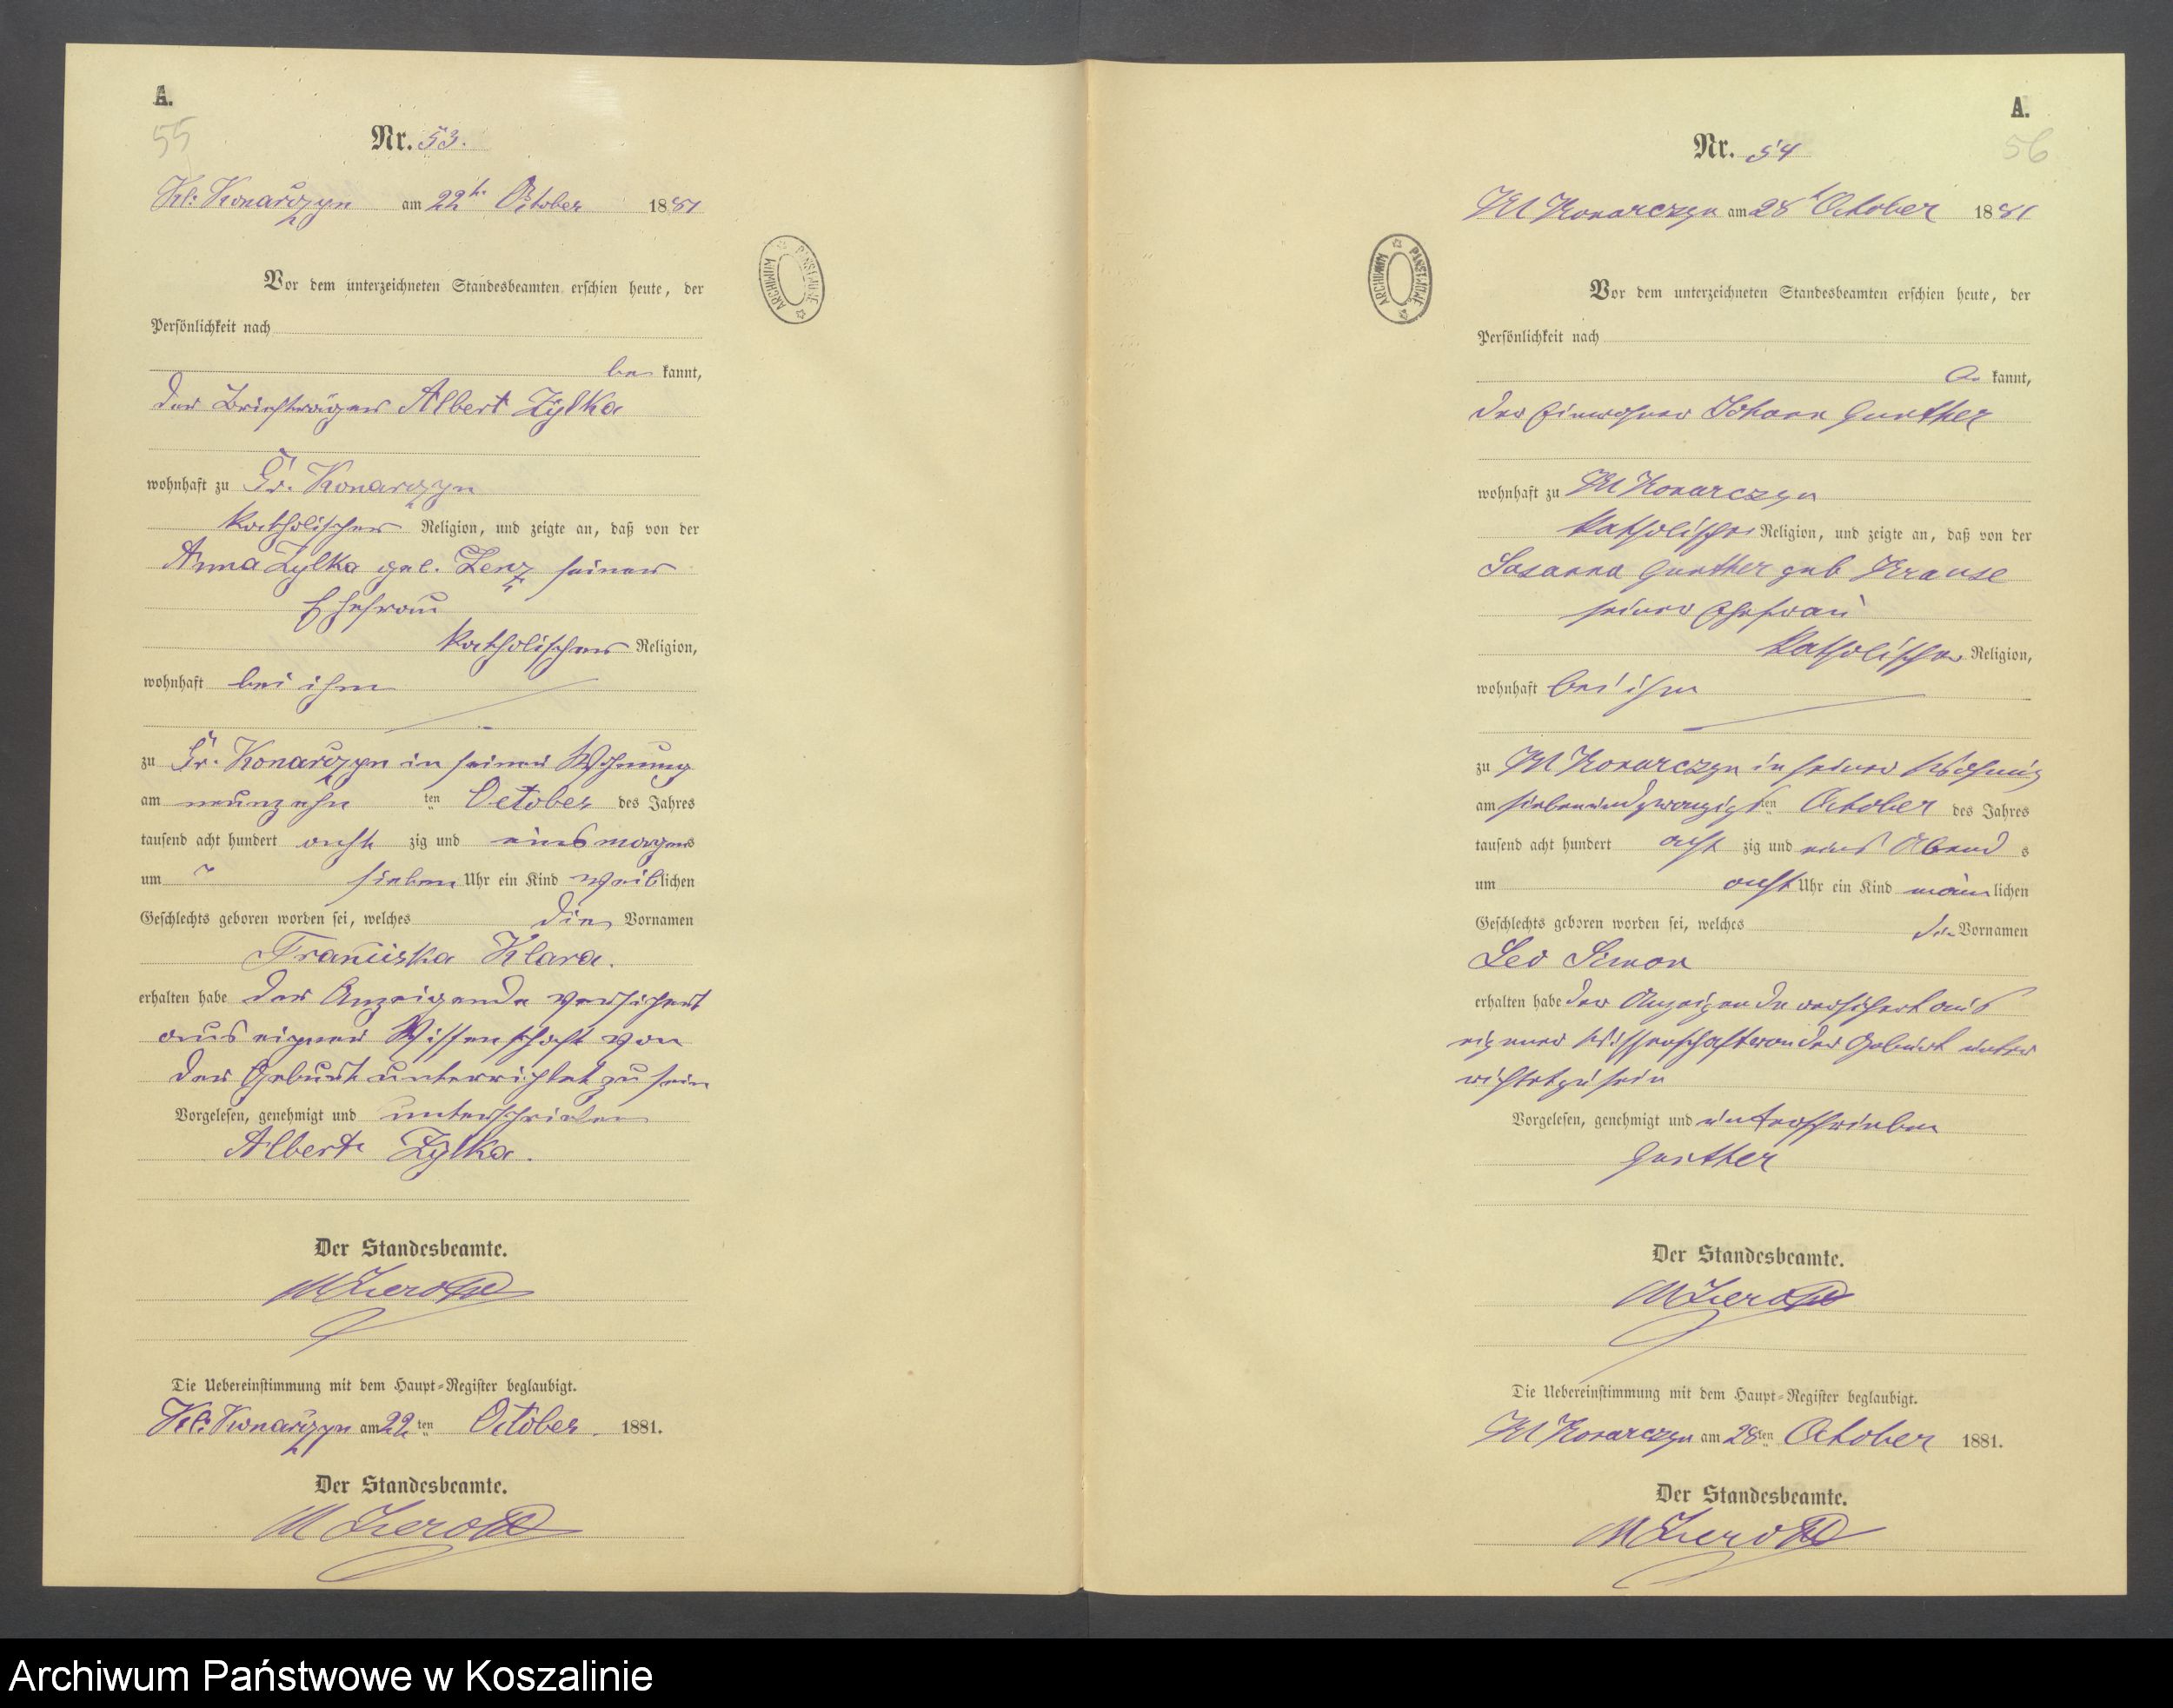 A.
55
Nr. 53.
Kl: Konarczyn am 22t. October 1881
Vor dem unterzeichneten Standesbeamten erschien heute, der
Persönlichkeit nach
be kannt,
der Briefträger Albert Zylka
wohnhaft zu Gr. Konarczyn
katholischer Religion, und zeigte an, daß von der
Anna Zylka geb. Lenz seiner
Ehefrau
katholischer Religion,
wohnhaft bei ihm
zu Gr. Konarczyn in seiner Wohnung
am neunzehn ten October des Jahres
tausend acht hundert acht zig und eins morgens
um sieben Uhr ein Kind weiblichen
Geschlechts geboren worden sei, welches die Vornamen
Franciska Klara.
erhalten habe der Anzeigende versichert
aus eigener Wissenschaft von
der Geburt unterrichtet zu sein
Vorgelesen, genehmigt und unterschrieben
Albert Zylka.
Der Standesbeamte.
Die Uebereinstimmung mit dem Haupt-Register beglaubigt.
Kl: Konarczyn am 22ten October. 1881.
Der Standesbeamte.
ARCHIWUM PAŃSTWOWE
A.
56
Nr. 54
Kl Konarczyn am 28t October 1881
Vor dem unterzeichneten Standesbeamten erschien heute, der
Persönlichkeit nach
kannt,
der Einwohner Johann Gunther
wohnhaft zu Kl Konarczyn
katholischer Religion, und zeigte an, daß von der
Susanna Gunther geb Krause
seiner Ehefrau
katholischer Religion,
wohnhaft bei ihm
zu Kl Konarczyn in seiner Wohnung
am siebenundzwanzigsten October des Jahres
tausend acht hundert acht zig und eins Abend s
um acht Uhr ein Kind männlichen
Geschlechts geboren worden sei, welches die Vornamen
Leo Simon
erhalten habe der Anzeigende versichert aus
eigener Wissenschaft von der Geburt unter
richtet zu sein
Vorgelesen, genehmigt und unterschrieben
Gunther
Der Standesbeamte.
Die Uebereinstimmung mit dem Haupt-Register beglaubigt.
Kl Konarczyn am 28ten October 1881.
Der Standesbeamte.
ARCHIWUM PAŃSTWOWE
Archiwum Państwowe w Koszalinie